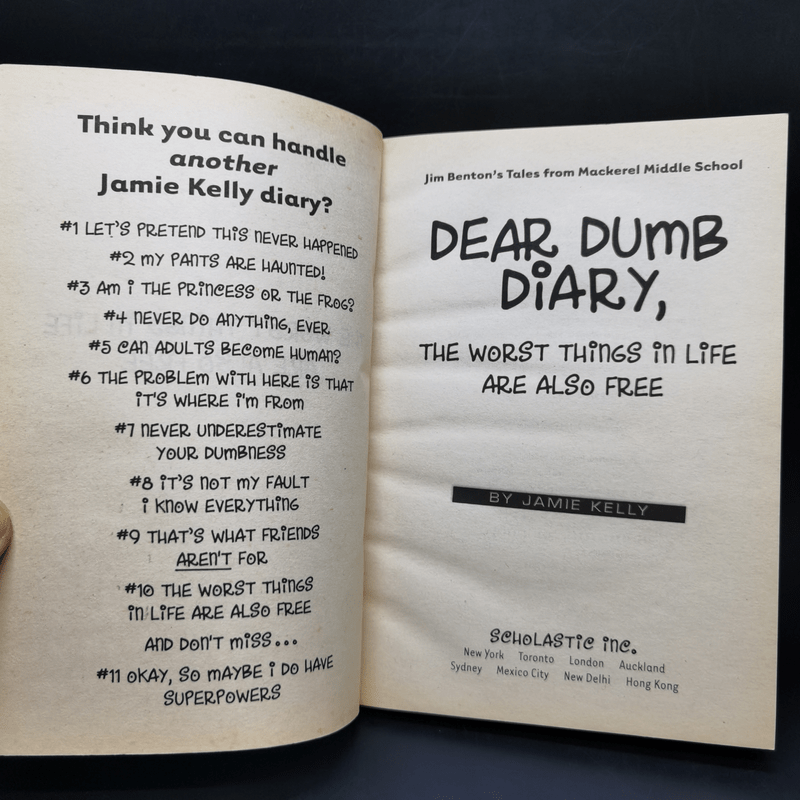 Think you can handle
another
Jamie Kelly diary?
#1 LET'S PRETEND THiS NEVER HAPPENED
#2 mY PANTS ARE HAUNTED!
#3 Am i THE PRiNCESS OR THE FROG?
#4 NEVER DO ANYTHiNG, EVER
#5 CAN ADULTS BECOmE HUmAN?
#6 THE PROBLEm WiTH HERE iS THAT
iT'S WHERE i'm FROm
#7 NEVER UNDERESTimATE
YOUR DUmBNESS
#8 iT'S NOT mY FAULT
i KNOW EVERYTHiNG
#9 THAT'S WHAT FRiENDS
AREN'T FOR
#10 THE WORST THiNGS
iN LiFE ARE ALSO FREE
AND DON'T miSS...
#11 OKAY, SO mAYBE i DO HAVE
SUPERPOWERS
Jim Benton's Tales from Mackerel Middle School
DEAR DUmB
DiARY,
THE WORST THiNGS iN LiFE
ARE ALSO FREE
BY JAMIE KELLY
SCHOLASTiC iNC.
New York Toronto London Auckland
Sydney Mexico City New Delhi Hong Kong